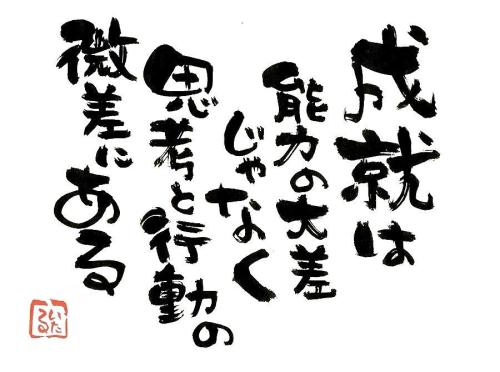 成就は
能力の大差
じゃなく
思考と行動の
微差にある